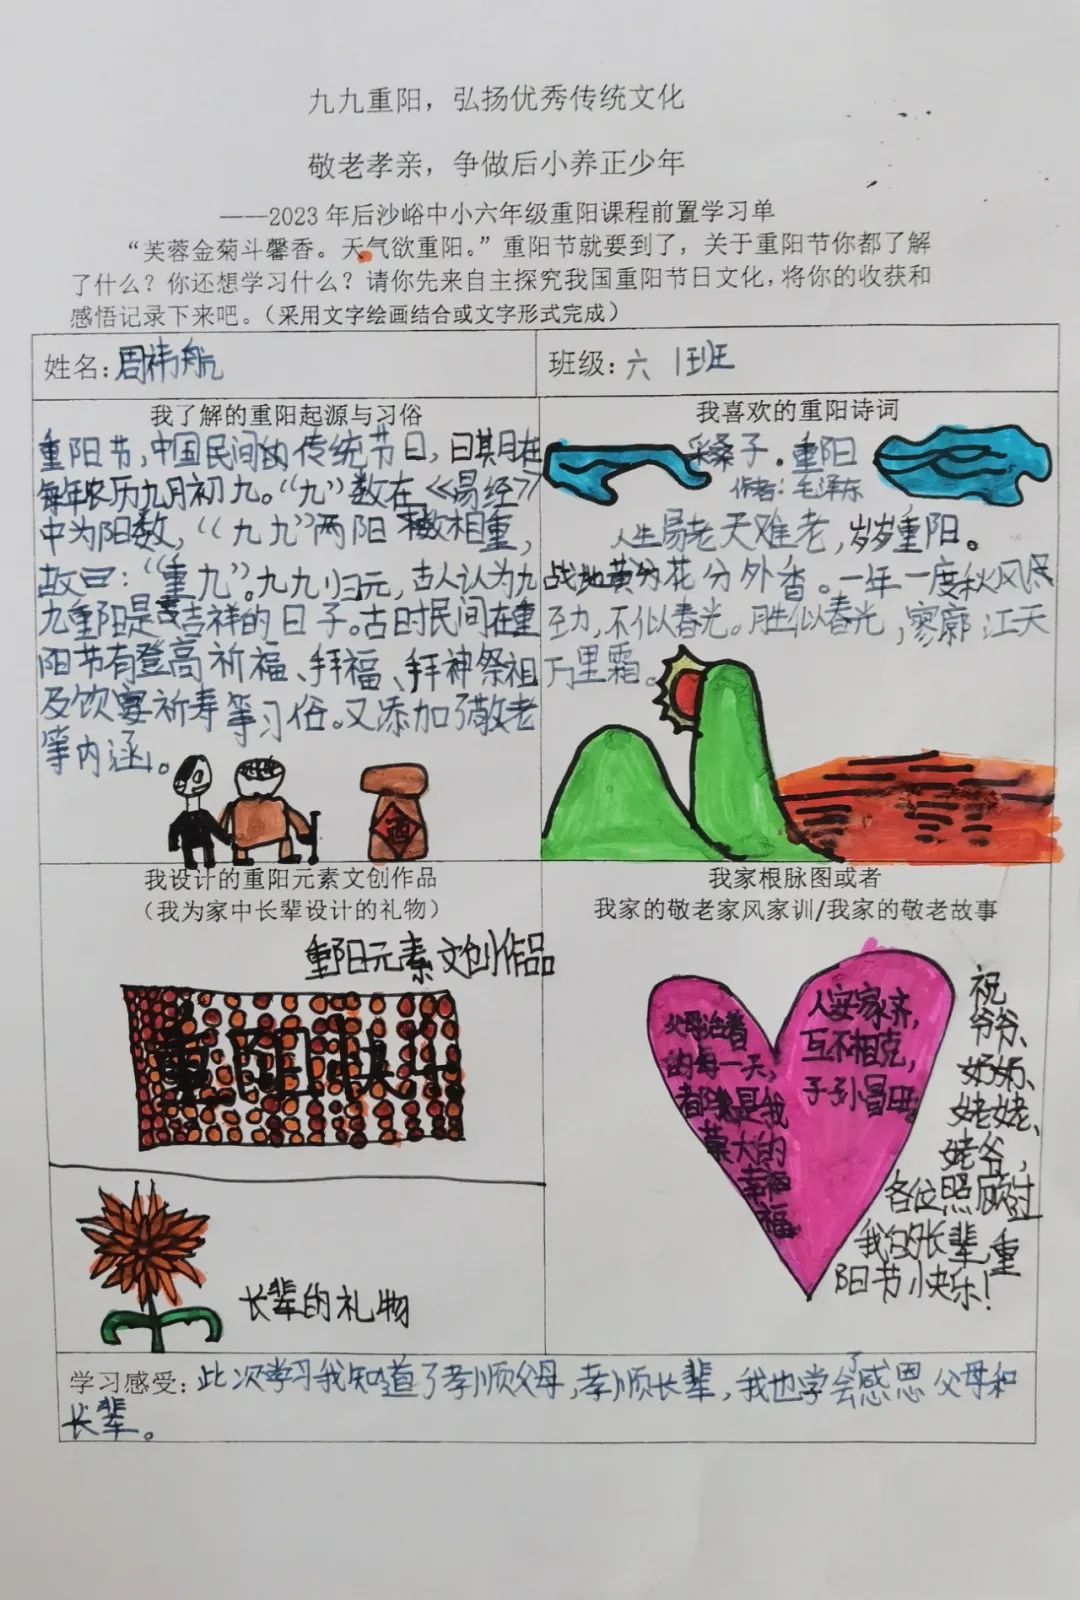 九九重阳，弘扬优秀传统文化
敬老孝亲，争做后小养正少年
——2023年后沙峪中小六年级重阳课程前置学习单
“芙蓉金菊斗馨香。天气欲重阳。”重阳节就要到了，关于重阳节你都了解
了什么？你还想学习什么？请你先来自主探究我国重阳节日文化，将你的收获和
感悟记录下来吧。（采用文字绘画结合或文字形式完成）
姓名：周祎航
班级：六 1班
我了解的重阳起源与习俗
重阳节，中国民间的传统节日，日期在
每年农历九月初九。“九”数在《易经》
中为阳数，“九九”两阳数相重，
故曰：“重九”。九九归元，古人认为九
九重阳是吉祥的日子。古时民间在重
阳节有登高祈福、拜福、拜神祭祖
及饮宴祈寿等习俗。又添加了敬老
等内涵。
酒
我喜欢的重阳诗词
采桑子．重阳
作者：毛泽东
人生易老天难老，岁岁重阳。
战地黄分花分外香。一年一度秋风
劲，不似春光。胜似春光，寥廓江天
万里霜。
我设计的重阳元素文创作品
（我为家中长辈设计的礼物）
重阳元素文创作品
重阳快乐
长辈的礼物
我家根脉图或者
我家的敬老家风家训/我家的敬老故事
父母活着
的每一天，
都是我
莫大的
幸福
人安家齐，
互不相克，
子孙昌旺。
祝
爷爷、
奶奶、
姥姥、
姥爷，
各位照顾过
我的长辈重
阳节快乐！
学习感受：此次学习我知道了孝顺父母，孝顺长辈，我也学会了感恩父母和
长辈。